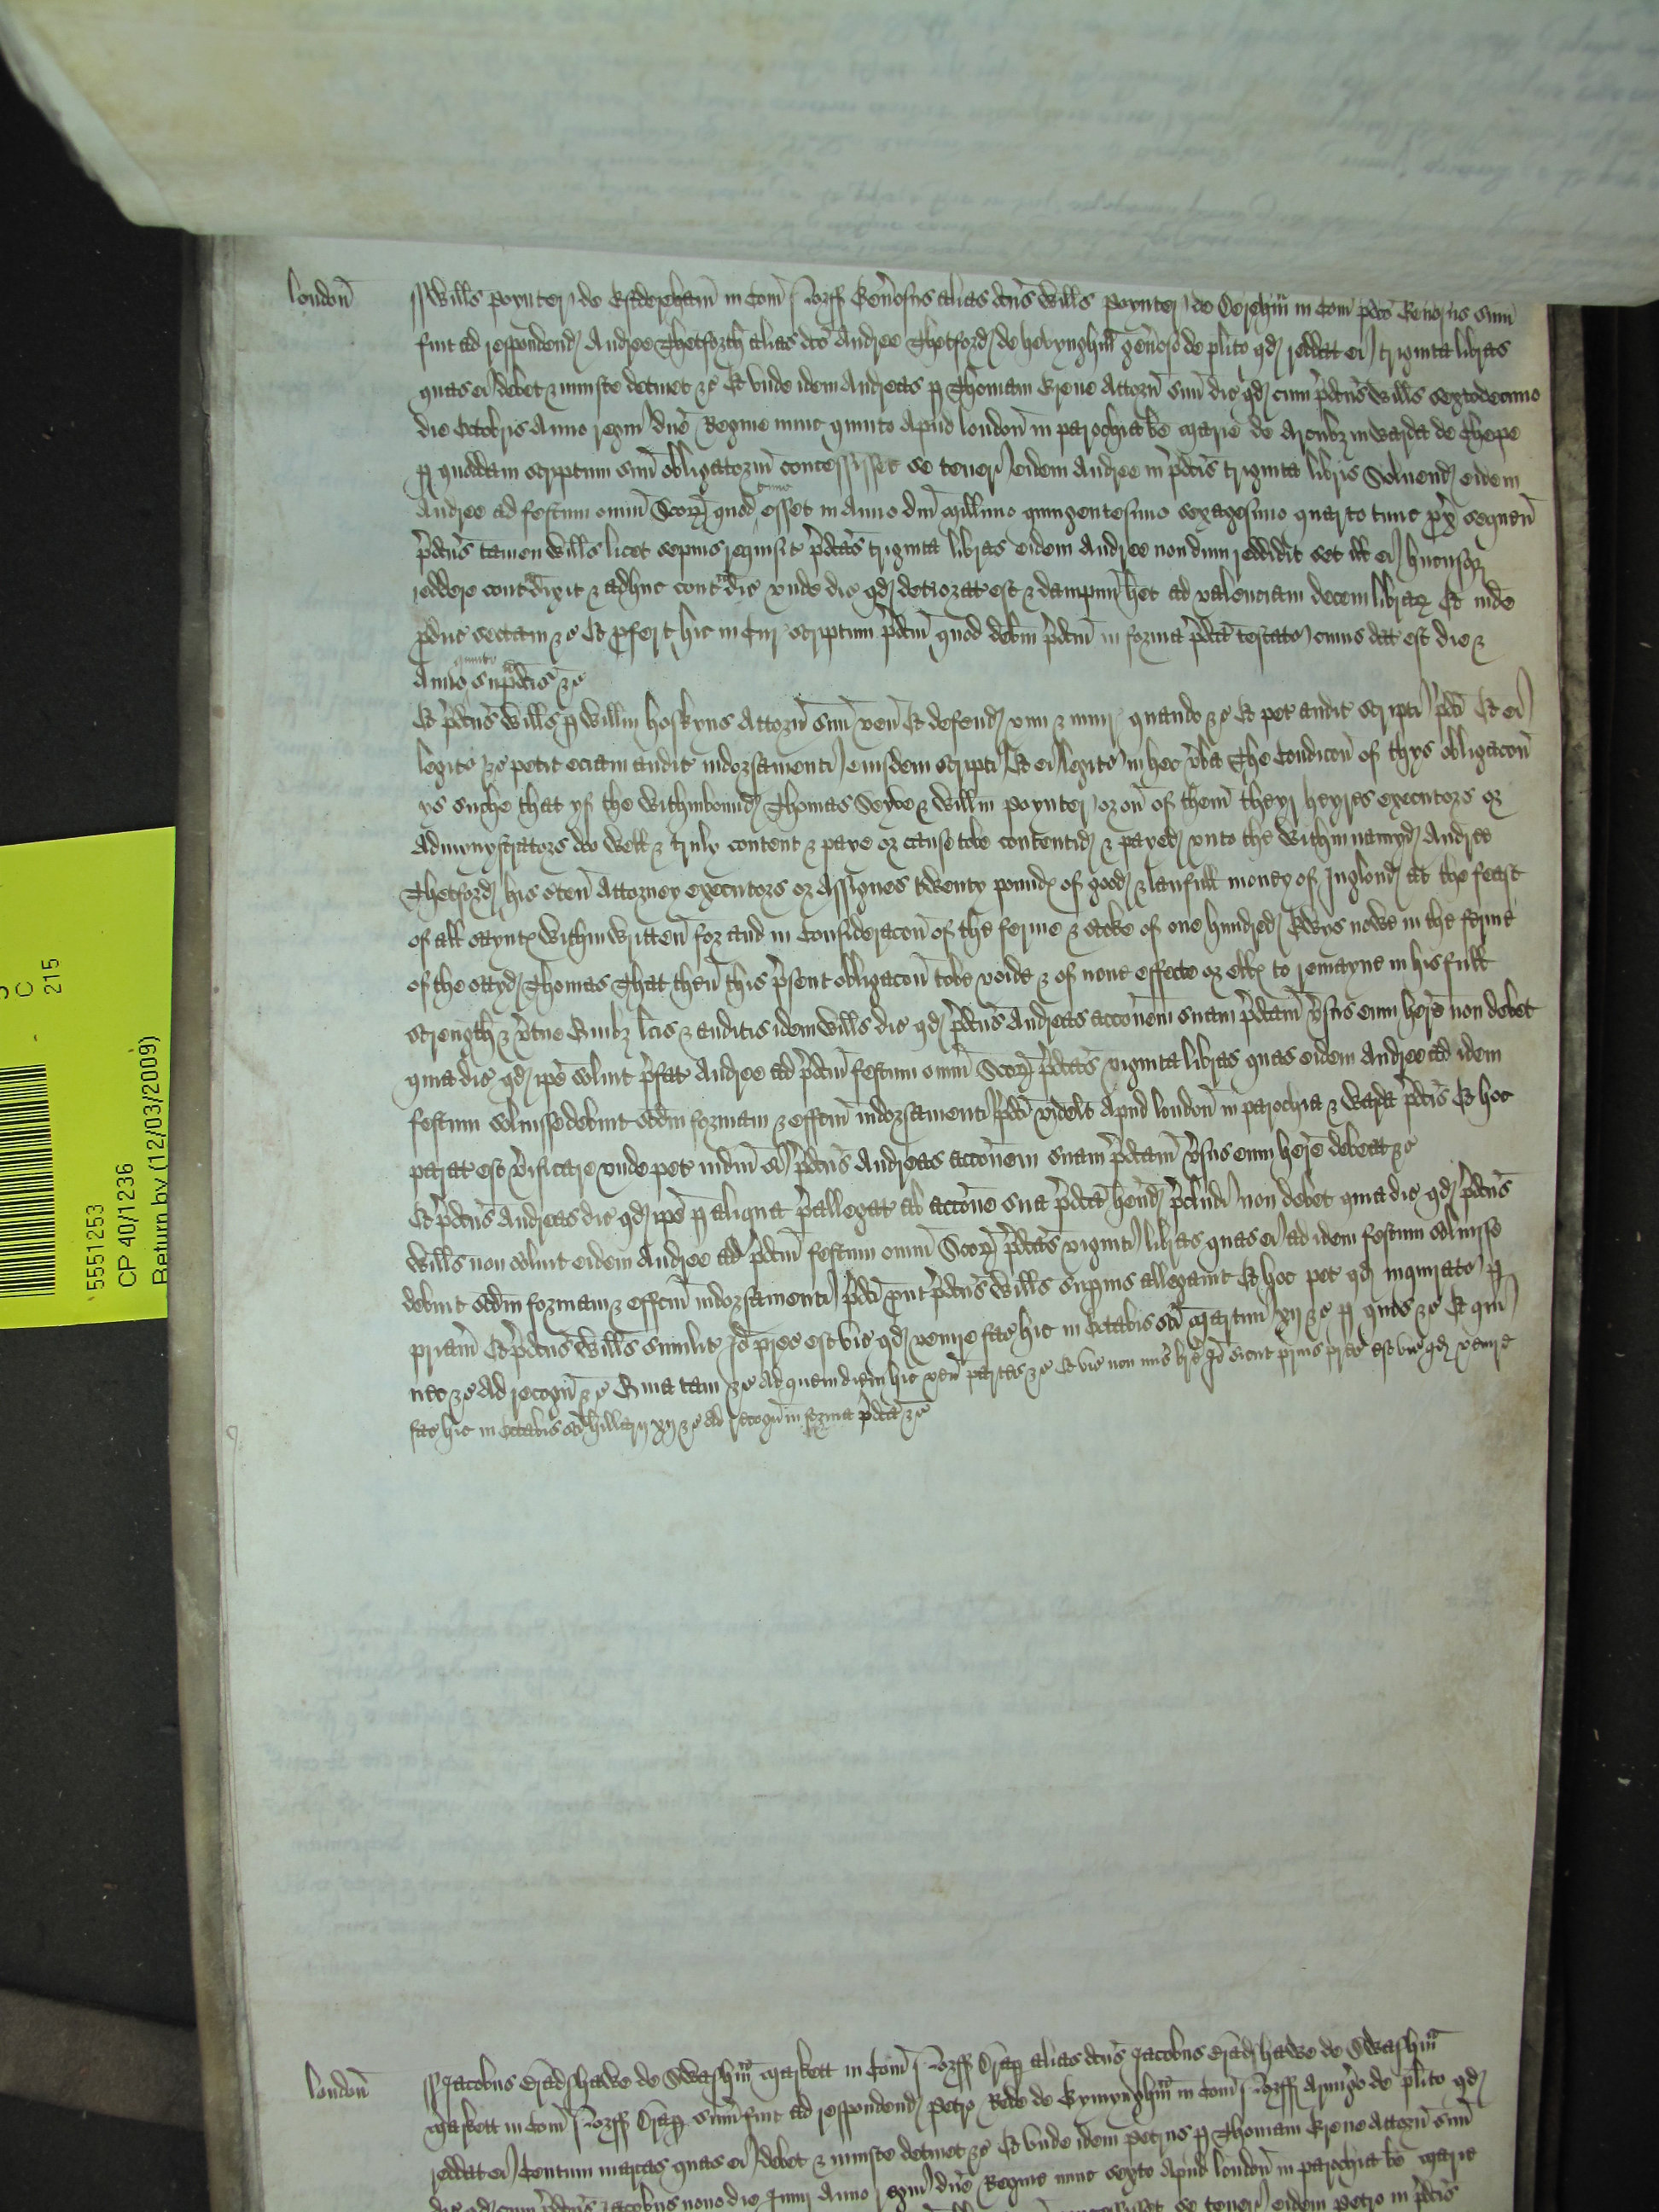 london̄ Willս poynter de Estdereham in Com̄ Norff Gen̄osus alias dc̄us Willս poynter de Derehm̄ in Com̄ p̄dc̄o Gen̄osus sum̄
fuit ad respondend Andree Thetforth alias dc̄o Andree Thetford de hevynghm̄ gen̄oso de pl̄ito qd reddat ei triginta libras
quas ei debet & iniuste detinet &c Et unde idem Andreas p Thomam Grene Attorn̄ suū dic̄ qd cum p̄dc̄us Willս sextodecimo
die Octobris Anno regni dn̄e Regine nunc quinto apud london̄ in parochia be Marie de Arcubz in warda de Chepe
p quoddam scriptum suū obligatoriū concessisset se teneri eidem Andree in p̄dc̄is triginta libris Soluend eidem
Andree ad festum omīn Scor̄ quod esset in Anno dn̄i Millimo quingentesimo sexagesimo quarto tunc px̄ sequen̄
p̄dc̄us tamen Willս licet sepius requisit p̄dc̄as triginta libras eidem Andree nondum reddidit set ill̄ ei hucusq
reddere contradixit & adhuc contradic̄ unde dic̄ qd deteriorat est & dampnū h̄et ad valenciam decem librar̄ Et inde
p̄duc̄ sectam &c Et p̄fert hic in Cur̄ scriptum p̄dc̄m̄ quod debm̄ p̄dc̄m̄ in forma p̄dc̄a testatr̄ cuius dat est die &
Anno quinto sup̄dc̄is &c
Et p̄dc̄us Willս p Willm̄ hoskyns Attorn̄ suū ven̄ Et defend vim & iniur̄ quando &c Et pet auditū scripti p̄dc̄i Et ei
legitr̄ &c petit eciam auditū indorsamenti eiusdem scripti Et ei legitr̄ in hec v̄ba The Condicon̄ of thys obligacon̄
ys suche that yf the withinbound Thomas & Willm̄ poynter or on̄ of them̄ theyr heyres executors or
admynystrators do well & truly content & paye or cause tobe contentid & payed unto the within namyd Andree
Thetford his Attorney executors or Assignes twenty pound of good & laufull money of Inglond at the feast
of all Saynt within written̄ for and in Consideracon̄ of the ferme & stoke of one hundred Ewys nowe in the ferme
of the sayd Thomas That then̄ this p̄sent obligacon̄ tobe voide & of none effecte or ell to remayne in his full
strength & v̄tue Quibz lc̄is & auditis idem Willս dic̄ qd p̄dc̄us Andreas accōnem suam p̄dc̄am v̄sus eum here non debet
quia dic̄ qd ip̄e soluit p̄fat Andree ad p̄dc̄m̄ festum omīn Scor̄ p̄dc̄as viginta libras quas eidem Andree ad idem
festum soluisse debuit scdm̄ formam & effcm̄ indorsamenti p̄dc̄i videlt apud london̄ in parochia & warda p̄dc̄is Et hoc
parat est v̄ificare unde pet iudm̄ si p̄dc̄us Andreas accōnem suam p̄dc̄am v̄sus eum here debeat &c
Et p̄dc̄us Andreas dic̄ qd ip̄e p aliqua p̄allegat ab accōne sua p̄dc̄a hend p̄cludi non debet quia dic̄ qd p̄dc̄us
Willս non soluit eidem Andree ad p̄dc̄m̄ festum omīn Scor̄ p̄dc̄as viginti libras quas ei ad idem festum soluisse
debuit scdm̄ formam & effcm̄ indorsamenti p̄dc̄i p̄ut p̄dc̄us Willս supius allegauit Et hoc pet qd inquiratr̄ p
priam̄ Et p̄dc̄us Willս similit̄ Iō prec̄ est vic̄ qd venire fac̄ hic in Octabis sc̄i Martini xij &c p quos &c Et qui
nec &c ad recogn̄ &c Quia tam &c ad quem diem hic ven̄ partes &c Et vic̄ non mis̄ br̄e Iō sicut prius prec̄ est vic̄ qd venire
fac̄ hic in Octabis sc̄i hillarij xij &c ad recogn̄ in forma p̄dc̄a &c
5551253
CP 40/1236
Return by (12/03/2009)
C
215
london̄ Jacobus Bradshawe de Swafhm̄ Markett in Com̄ Norff Drap alias dc̄us Jacobus Bradshawe de Swafhm̄
Markett in Com̄ Norff Drap sum̄ fuit ad respondend Petro Rede de Gymynghm̄ in Com̄ Norff Armig̃o de pl̄ito qd
reddat ei Centum marcas quas ei debet & iniuste detinet &c Et unde idem Petrus p Thomam Grene Attorn̄ suū
dic̄ qd cum p̄dc̄us Jacobus nono die Junij Anno regni dn̄e Regine nunc sexto apud london̄ in parochia be Marie
se teneri eidem Petro in p̄dc̄is